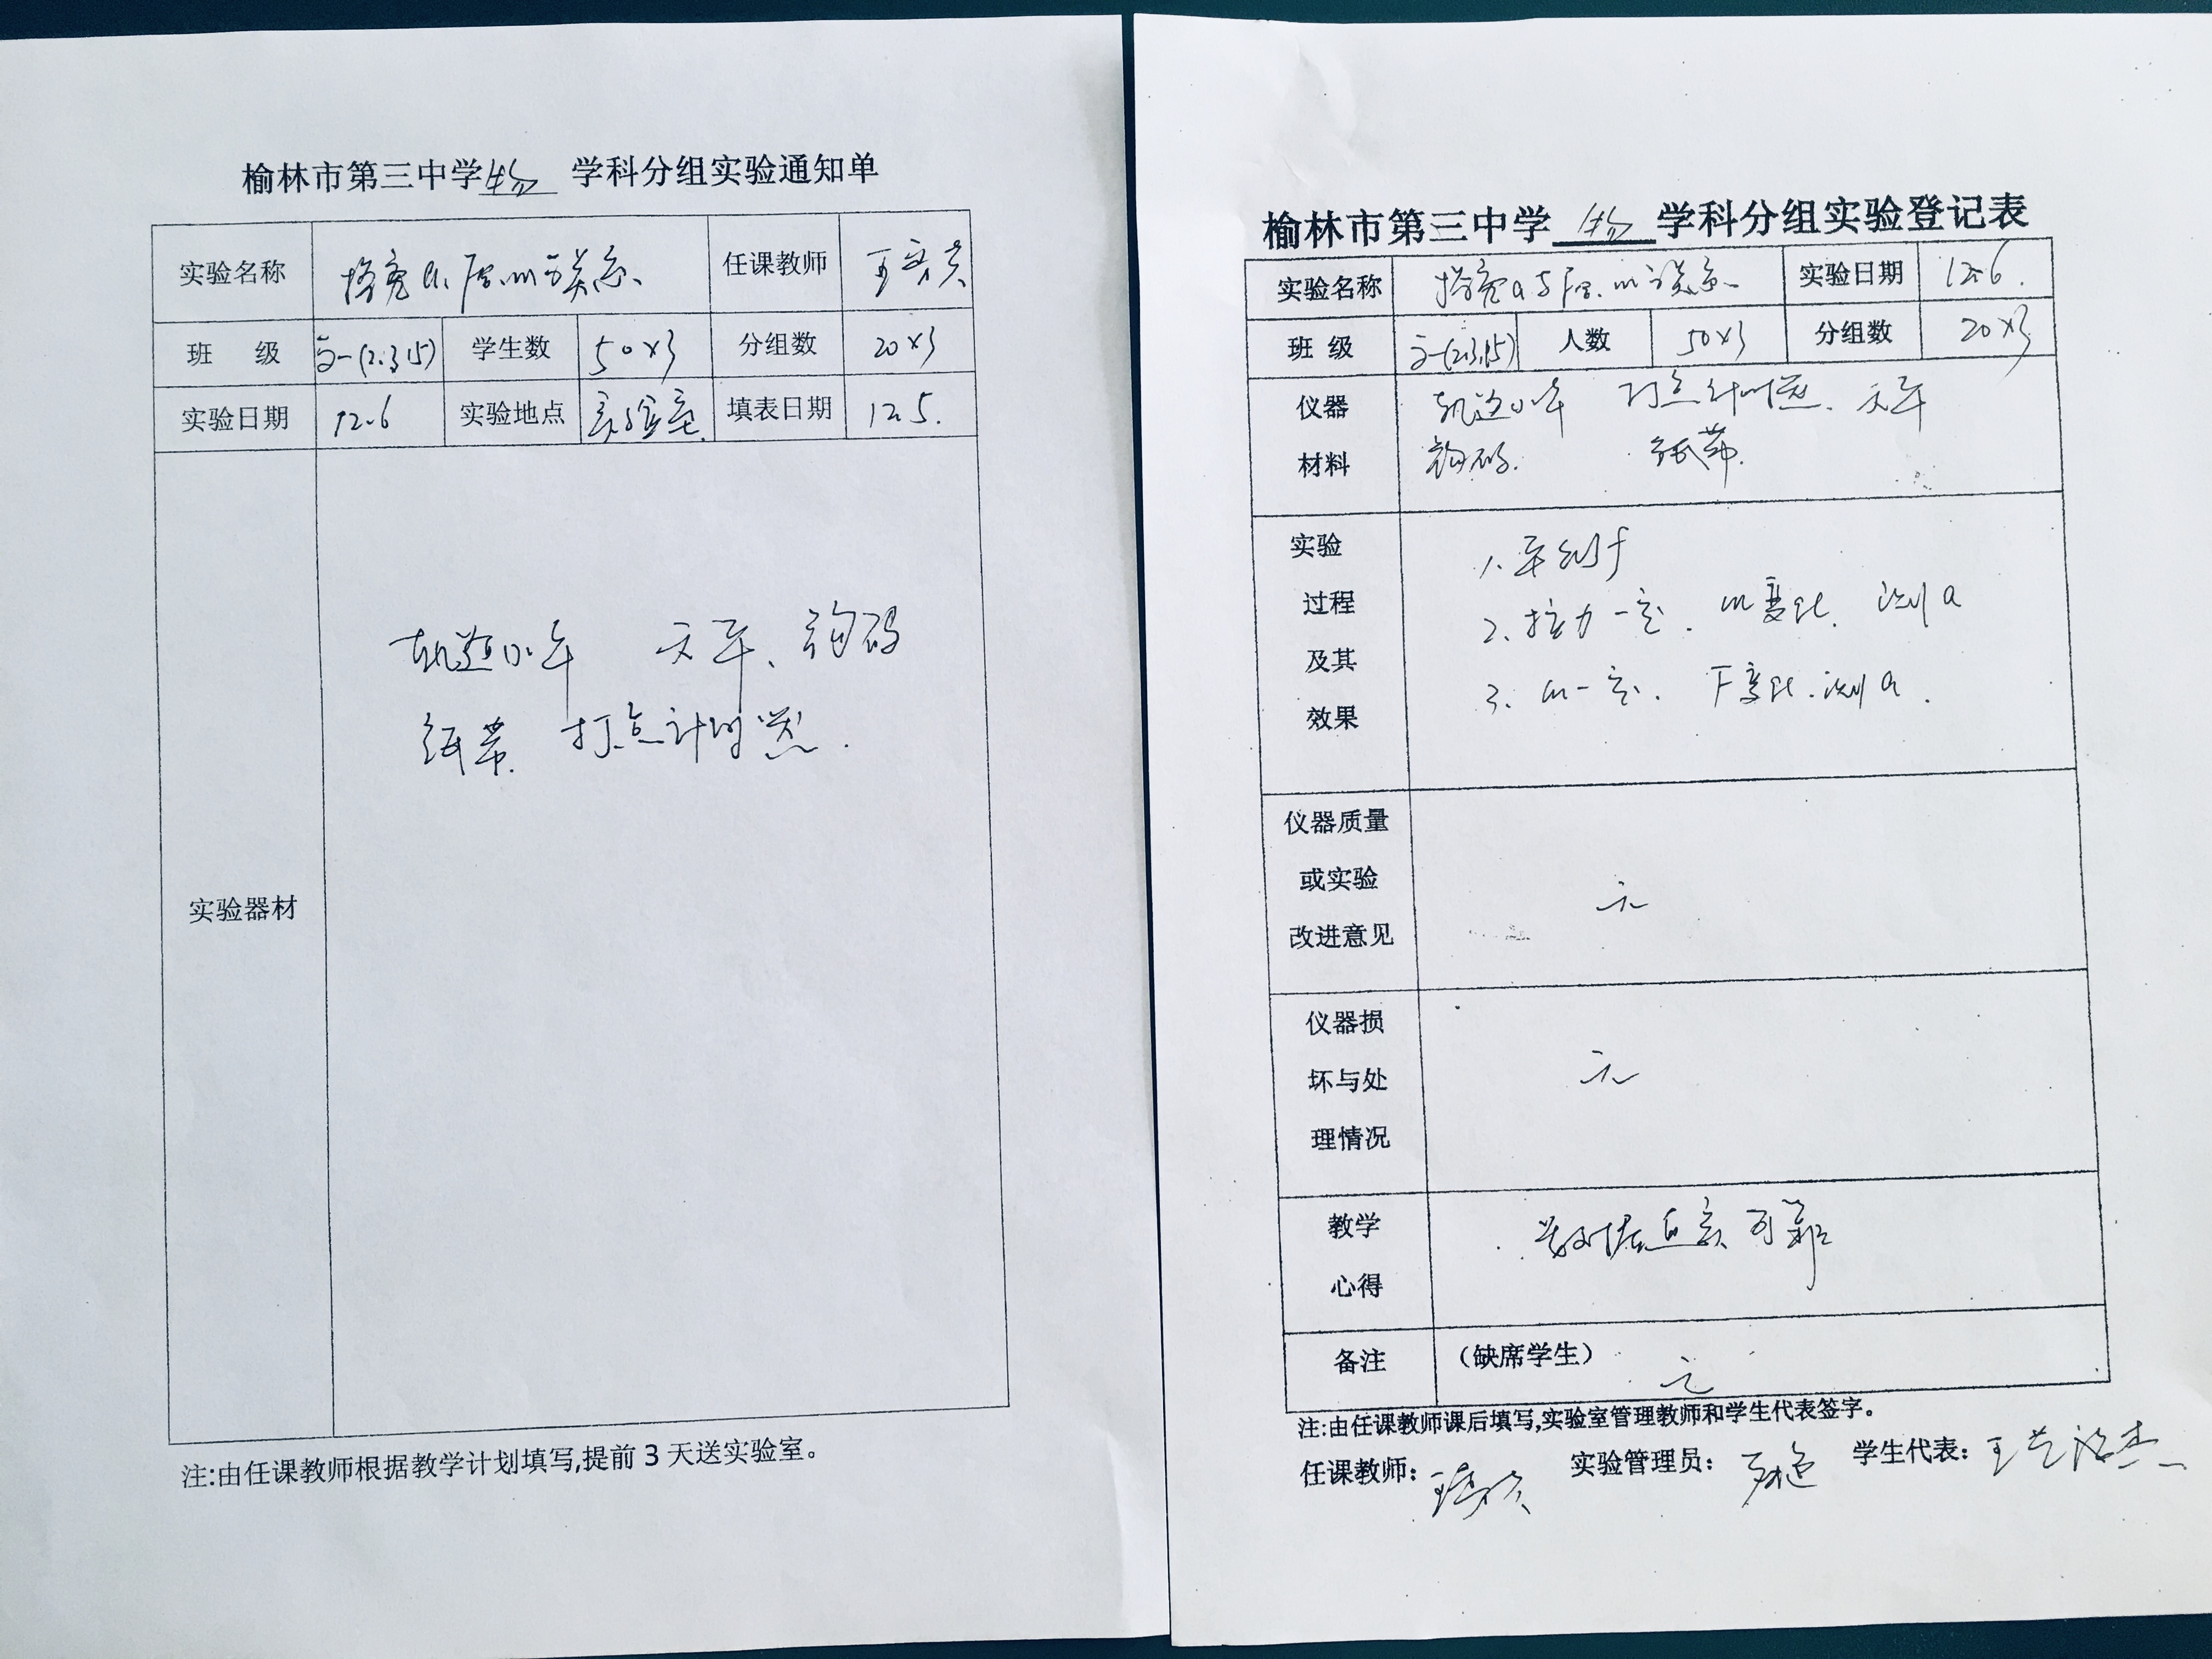 榆林市第三中学物学科分组实验通知单
实验名称 探究a、F.m的关系、 任课教师
班 级 高一(2.3.15) 学生数 50×3 分组数 20×3
实验日期 12.6 实验地点 实验室 填表日期 12.5.
轨道小车 天平、钩码
纸带 打点计时器.
实验器材
注:由任课教师根据教学计划填写,提前3天送实验室。
榆林市第三中学 物 学科分组实验登记表
实验名称 探究a与F.m的关系 实验日期 12.6.
班 级 高一(2.3.15) 人数 50×3 分组数 20×3
仪器 轨道小车 打点计时器. 天平
材料 钩码. 纸带.
实验 1. 平衡f
过程 2、拉力一定. m变化. 测a
及其 3. m一定. F变化.测a.
效果
仪器质量
或实验 无
改进意见
仪器损
坏与处 无
理情况
教学 数据真实可靠
心得
备注 (缺席学生) 无
注:由任课教师课后填写,实验室管理教师和学生代表签字。
任课教师: 实验管理员: 学生代表: